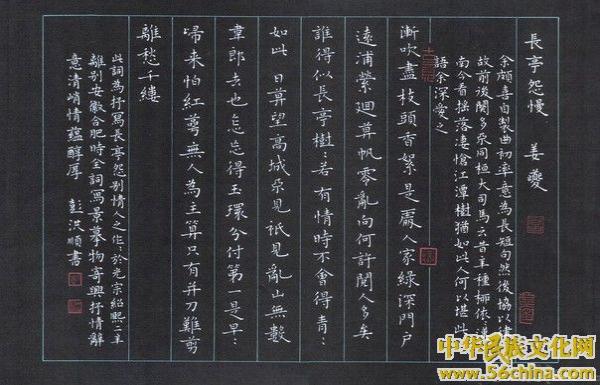 長亭怨慢　姜夔
余頗喜自製曲初率意為長短句然後協以律
故前後闋多不同桓大司馬云昔年種柳依：漢
南今看搖落悽愴江潭樹猶如此人何以堪此
語余深愛之
漸吹盡枝頭香絮是處人家綠深門戶
遠浦縈迴暮帆零亂向何許閱人多矣
誰得似長亭樹：若有情時不會得青：
如此日暮望高城不見祇見亂山無數
韋郎去也怎忘得玉環分付第一是早：
歸來怕紅萼無人為主算只有并刀難剪
離愁千縷
此詞為抒寫長亭怨別情人之作：於光宗紹熙二年
離別安徽合肥時全詞寫景摹物寄興抒情辭
意清峭情蘊醇厚　彭順書
中华民族文化网
www.56china.com